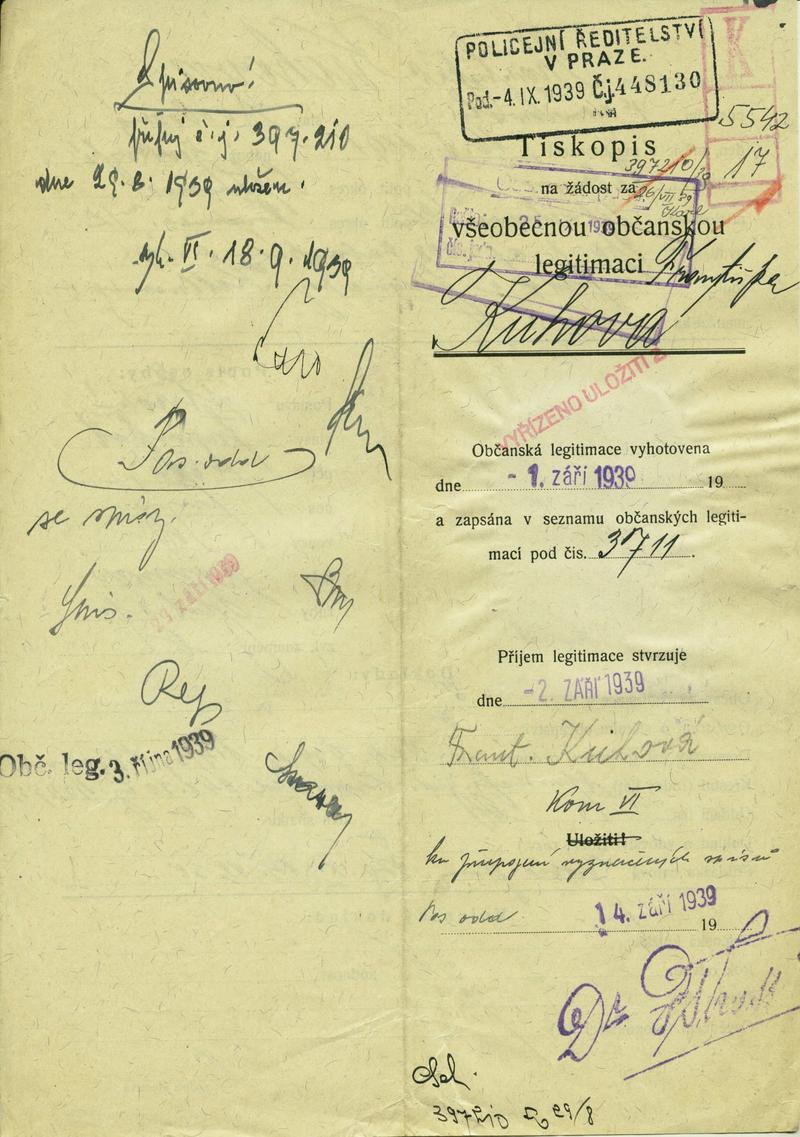 Spisovna!
připoj č. j. 397.210
dne 29.8. 1939 uložen.
VI. 18.9. 1939
Pas. odd
se spisy.
Spis.
23 září 1939
Obč. leg. 3. října 1939
POLICEJNÍ ŘEDITELSTVÍ
V PRAZE.
Pod. -4. IX. 1939 Čj. 448130
K
5542
17
Tiskopis
397210/39
na žádost za
26/VII 39
všeobecnou občanskou
legitimaci Františka
Kuhova
VYŘÍZENO ULOŽITI
Občanská legitimace vyhotovena
dne - 1. září 1939 19
a zapsána v seznamu občanských legiti-
mací pod čís. 3711.
Příjem legitimace stvrzuje
dne -2. ZÁŘÍ 1939
Frant. Kuhová
Kom VI
Uložiti!
ku připojení vyznačených spisů
Pas odd 14. září 1939 19
Dr
397210 29/8